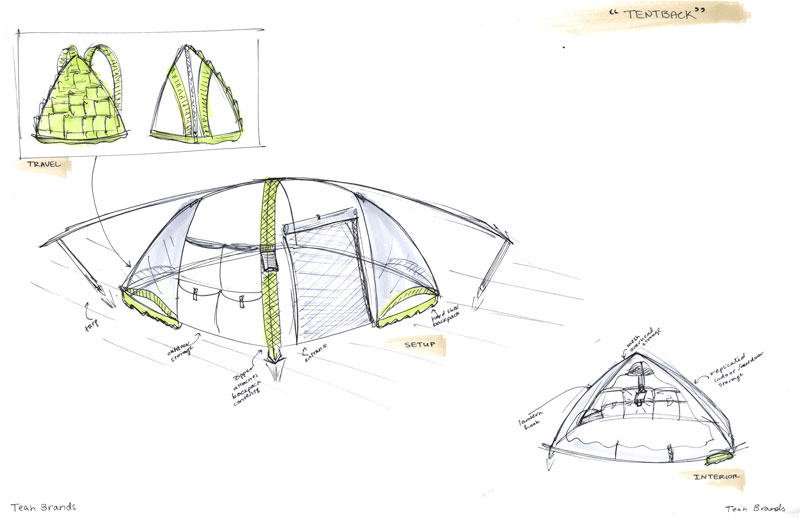 "TENTBACK"
TRAVEL
tarp
outdoor
storage
zipper
attaches
backpack
contents
entrance
hard shell
backpack
SETUP
mesh
overhead
storage
replicated
indoor/outdoor
storage
lantern
hook
INTERIOR
Teah Brands
Teah Brands